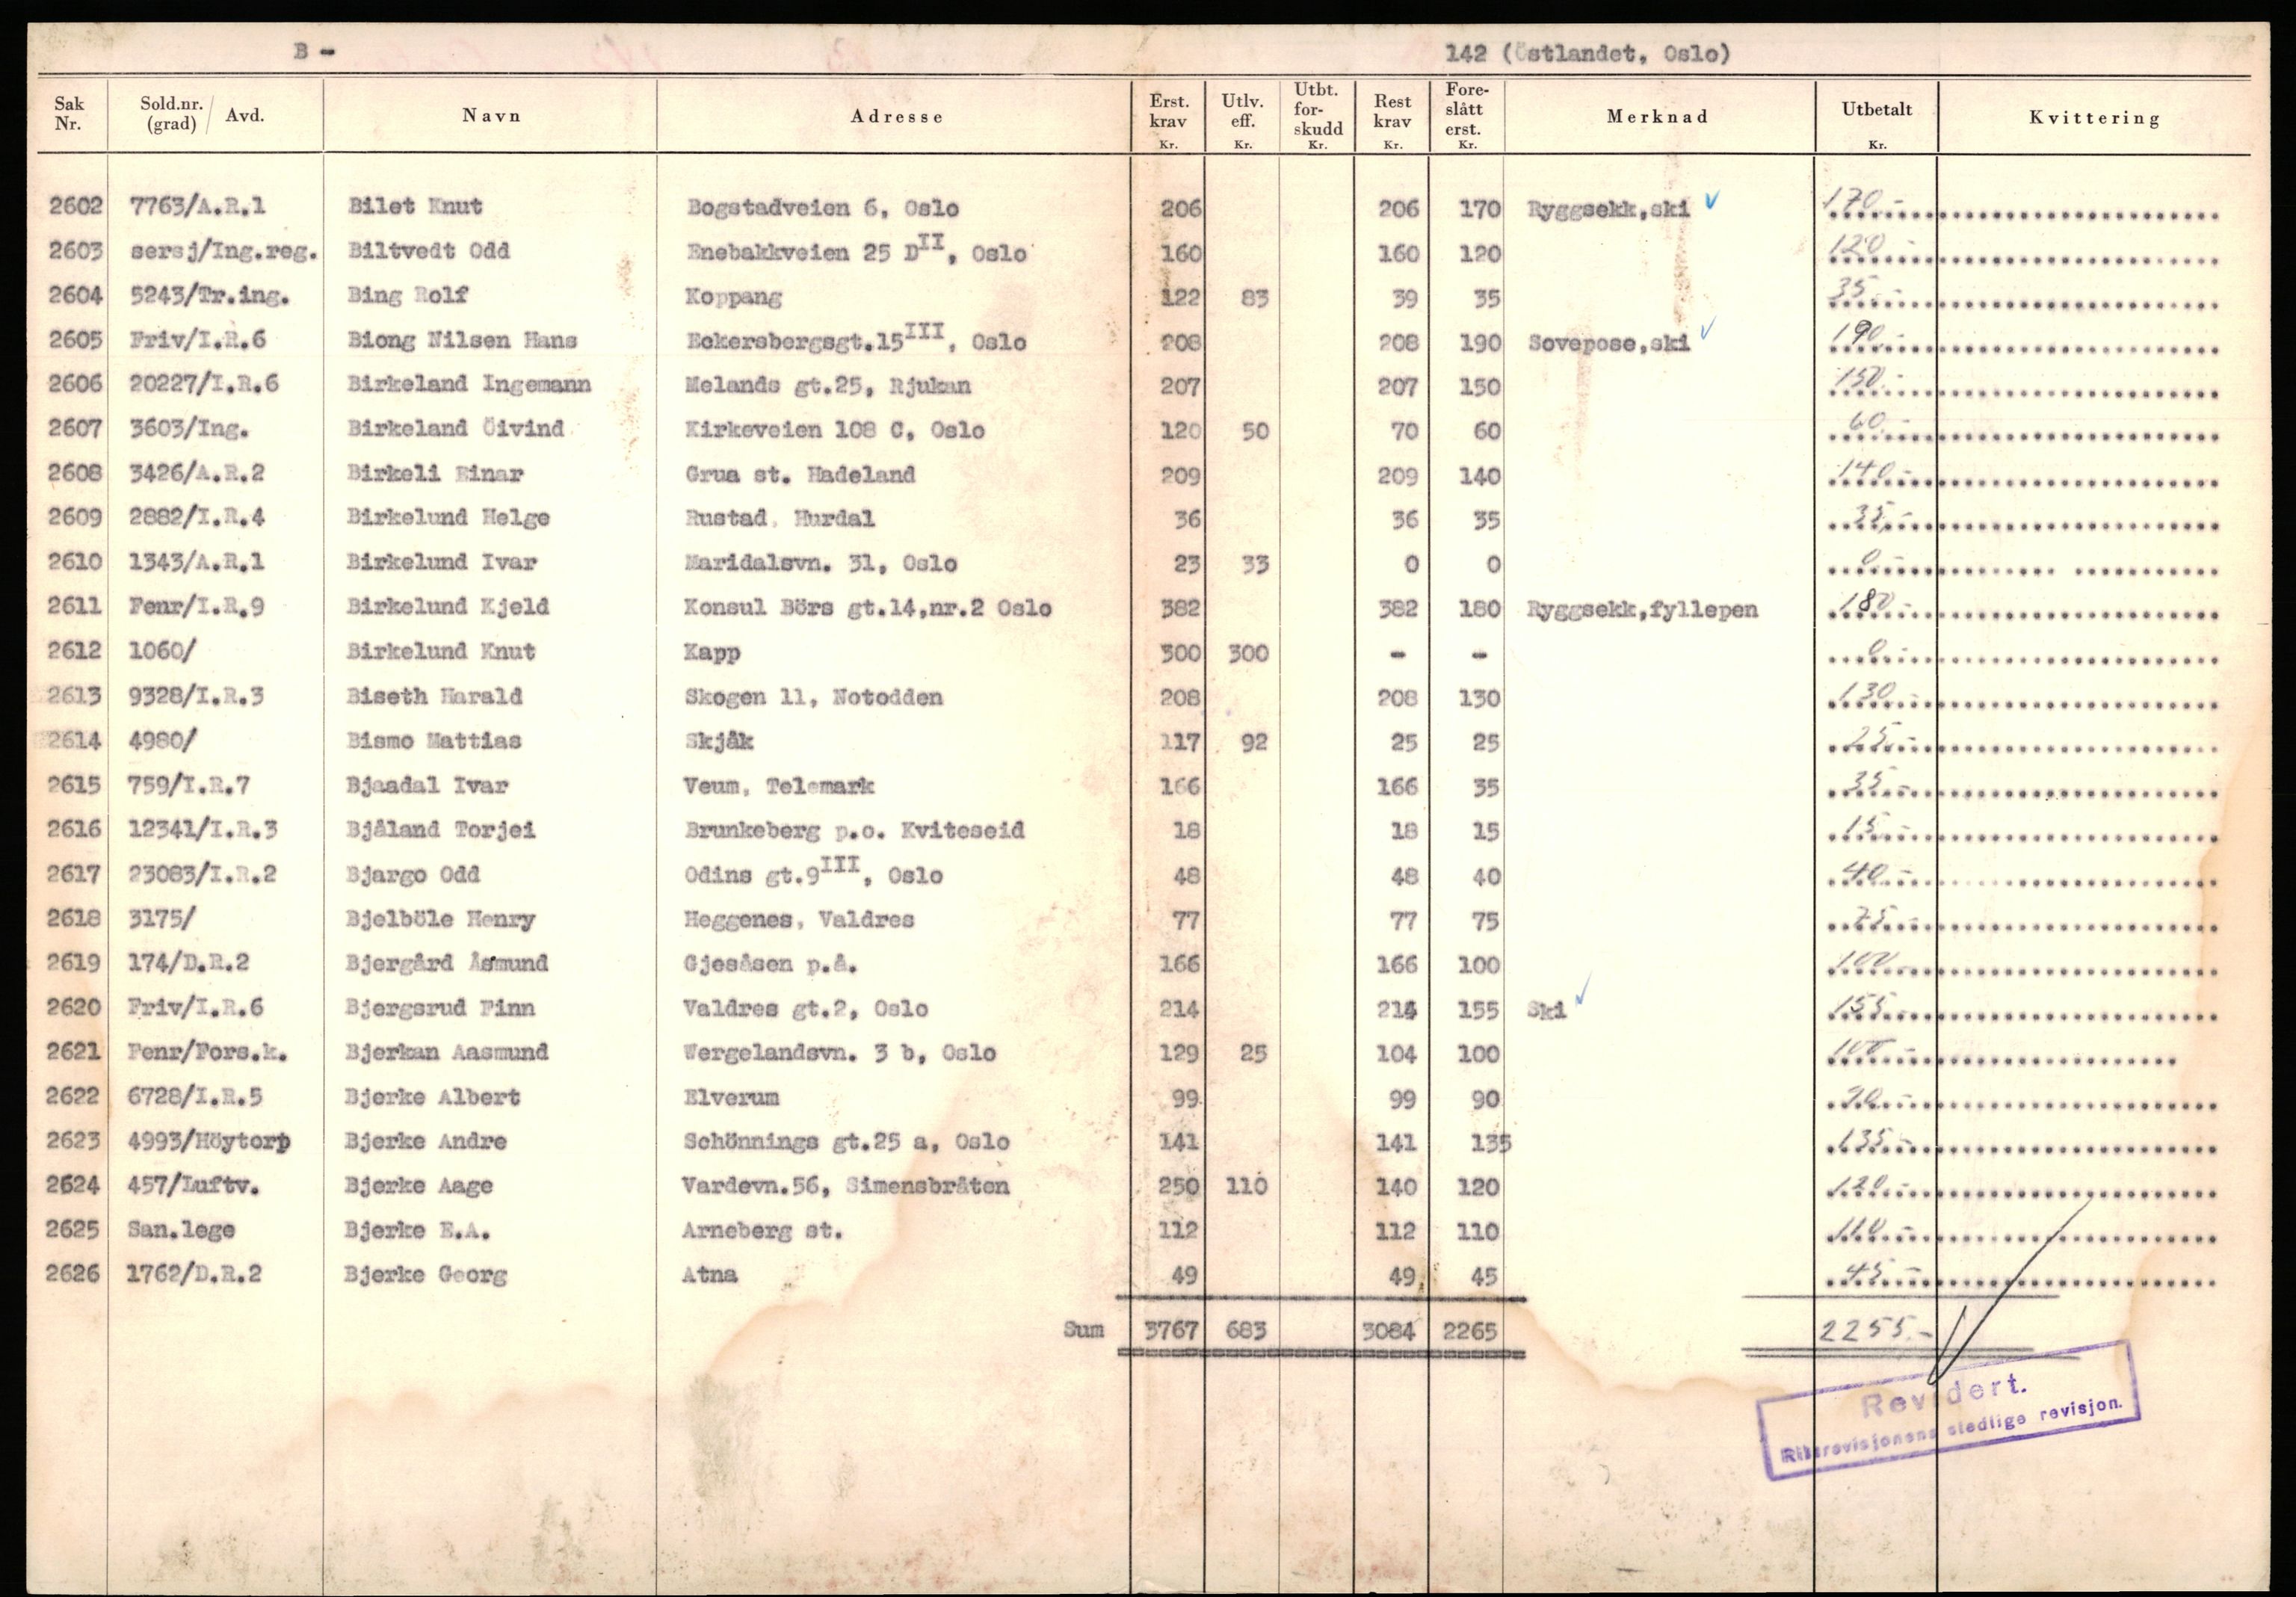 B - 142 (Östlandet, Oslo)
Sak Nr. Sold.nr. (grad) / Avd. Navn Adresse Erst. krav Kr. Utlv. eff. Kr. Utbt. for- skudd Kr. Rest krav Kr. Fore- slått erst. Kr. Merknad Utbetalt Kr. Kvittering
2602 7763/A.R.1 Bilet Knut Bogstadveien 6, Oslo 206 206 170 Ryggsekk,ski ✓ 170.-
2603 sersj/Ing.reg. Biltvedt Odd Enebakkveien 25 D II, Oslo 160 160 120 120.-
2604 5243/Tr.ing. Bing Rolf Koppang 122 83 39 35 35.-
2605 Friv/I.R.6 Biong Nilsen Hans Eckersbergsgt.15 III, Oslo 208 208 190 Sovepose,ski ✓ 190.-
2606 20227/I.R.6 Birkeland Ingemann Melands gt.25, Rjukan 207 207 150 150.-
2607 3603/Ing. Birkeland Öivind Kirkeveien 108 C, Oslo 120 50 70 60 60.-
2608 3426/A.R.2 Birkeli Einar Grua st. Hadeland 209 209 140 140.-
2609 2882/I.R.4 Birkelund Helge Rustad, Hurdal 36 36 35 35.-
2610 1343/A.R.1 Birkelund Ivar Maridalsvn. 31, Oslo 23 33 0 0 0.-
2611 Fenr/I.R.9 Birkelund Kjeld Konsul Börs gt.14,nr.2 Oslo 382 382 180 Ryggsekk,fyllepen 180.-
2612 1060/ Birkelund Knut Kapp 300 300 - - 0.-
2613 9328/I.R.3 Biseth Harald Skogen 11, Notodden 208 208 130 130.-
2614 4980/ Bismo Mattias Skjåk 117 92 25 25 25.-
2615 759/I.R.7 Bjaadal Ivar Veum, Telemark 166 166 35 35.-
2616 12341/I.R.3 Bjåland Torjei Brunkeberg p.o. Kviteseid 18 18 15 15.-
2617 23083/I.R.2 Bjargo Odd Odins gt.9 III, Oslo 48 48 40 40.-
2618 3175/ Bjelböle Henry Heggenes, Valdres 77 77 75 75.-
2619 174/D.R.2 Bjergård Åsmund Gjesåsen p.å. 166 166 100 100.-
2620 Friv/I.R.6 Bjergsrud Finn Valdres gt.2, Oslo 214 214 155 Ski ✓ 155.-
2621 Fenr/Fors.k. Bjerkan Aasmund Wergelandsvn. 3 b, Oslo 129 25 104 100 100.-
2622 6728/I.R.5 Bjerke Albert Elverum 99 99 90 90.-
2623 4993/Höytorp Bjerke Andre Schönnings gt.25 a, Oslo 141 141 135 135.-
2624 457/Luftv. Bjerke Aage Vardevn.56, Simensbråten 250 110 140 120 120.-
2625 San.lege Bjerke E.A. Arneberg st. 112 112 110 110.-
2626 1762/D.R.2 Bjerke Georg Atna 49 49 45 45.-
Sum 3767 683 3084 2265 2255.-
Revidert.
Riksrevisjonens stedlige revisjon.